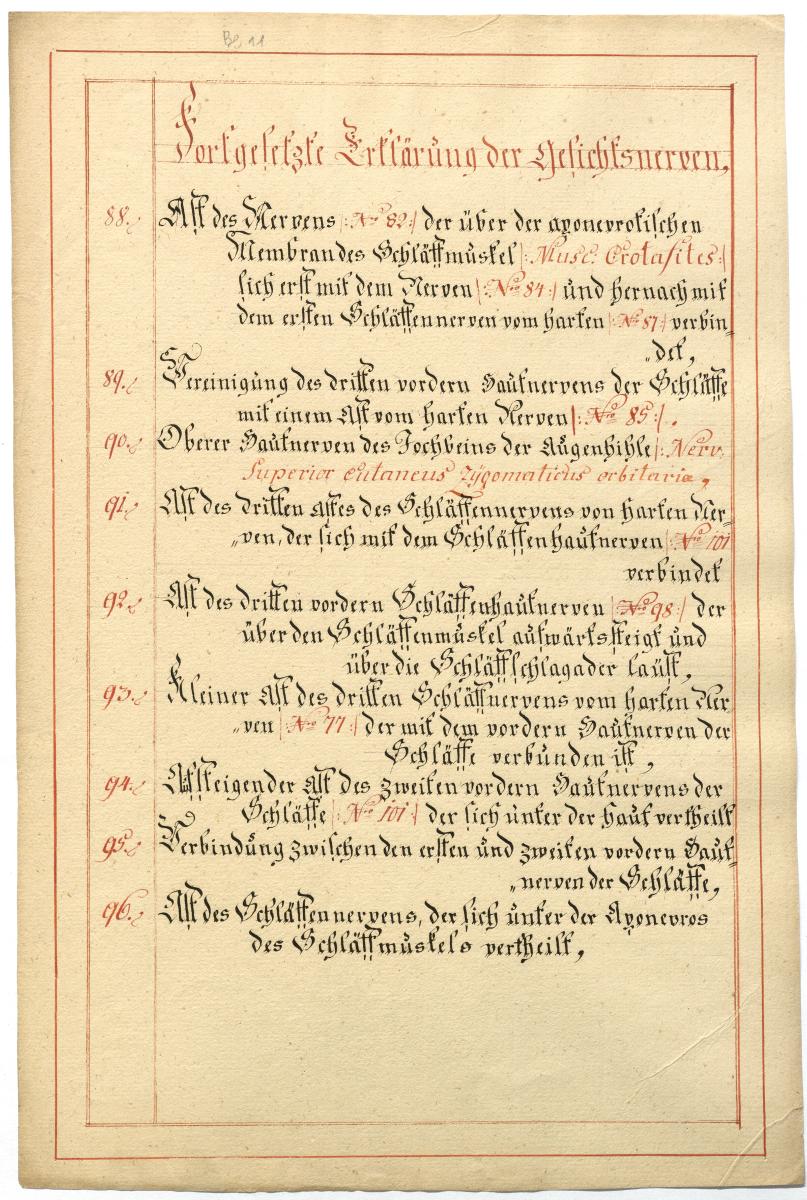 Fortgesetzte Erklärung der Gesichtsnerven,
88. Ast des Nervens |: No 82 :| der über der aponevrotischen
Membran des Schläffmuskel |: Musc: Crotafites :|
sich erst mit dem Nerven |: No 84 :| und hernach mit
dem ersten Schläffennerven vom harten |: No 87 :| verbin„
„det,
89. Vereinigung des dritten vordern Hautnervens der Schläffe
mit einem Ast vom harten Nerven |: No 85 :| .
90. Oberer Hautnerven des Jochbeins der Augenhihle |: Nerv:
Superior cutaneus zygomaticus orbitariæ,
91. Ast des dritten Astes des Schläffennervens von harten Ner„
„ven, der sich mit dem Schläffenhautnerven |: No 101
verbindet
92. Ast des dritten vordern Schläffenhautnerven |: No 98 :| der
über den Schläffenmuskel aufwärtssteigt und
über die Schläffschlagader lauft,
93. Kleiner Ast des dritten Schläffnervens vom harten Ner
„ven |: No 77 :| der mit dem vordern Hautnerven der
Schläffe verbunden ist,
94. Aufsteigender Ast des zweiten vordern Hautnervens der
Schläffe |: No 101 :| der sich unter der Haut vertheilt
95. Verbindung zwischen den ersten und zweiten vordern Haut„
„nerven der Schläffe,
96. Ast des Schläffennervens, der sich unter der Aponevros
des Schläffmuskels vertheilt,